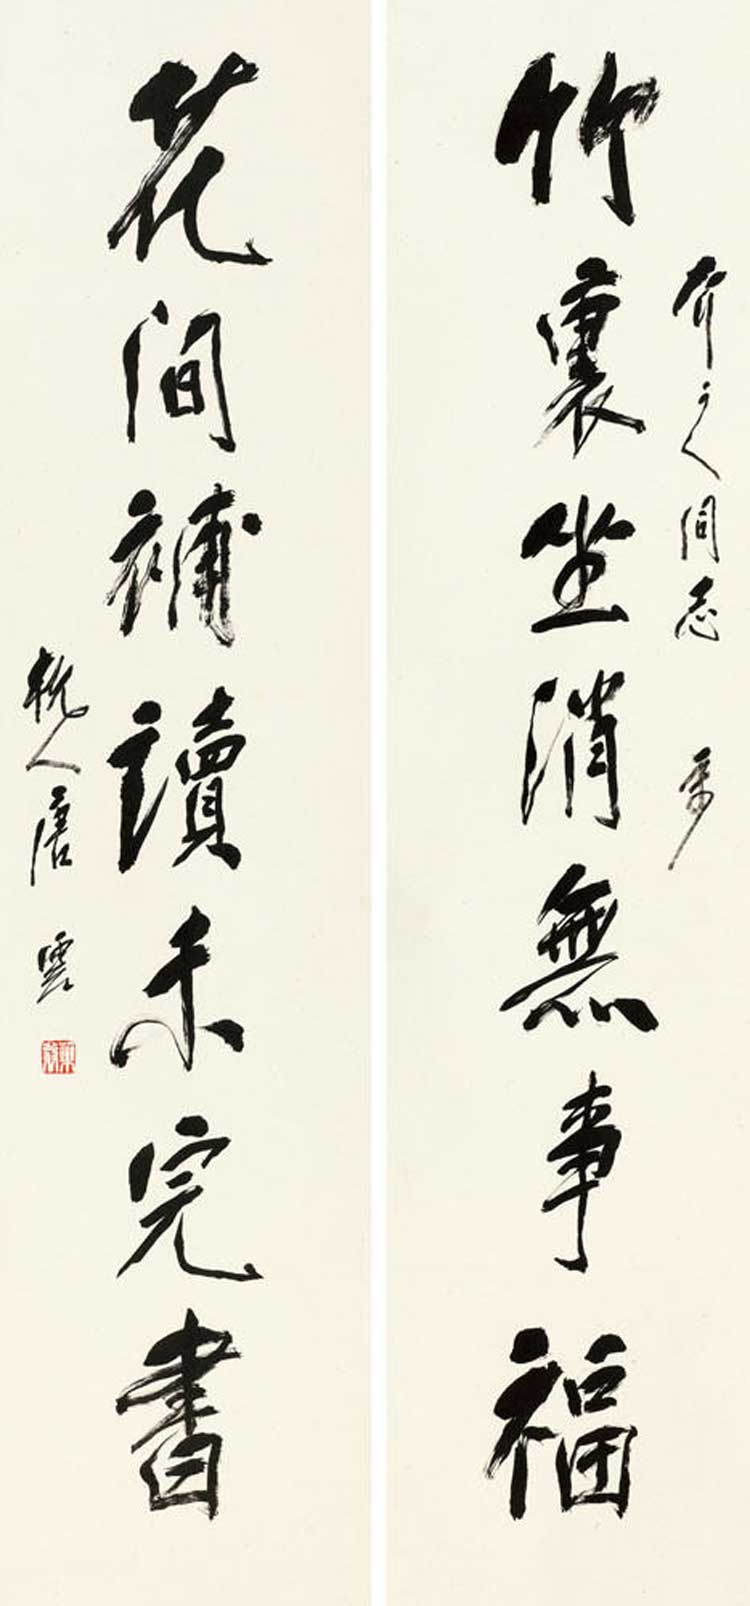 同志
竹裏坐消無事福
花間補讀未完書
杭人唐雲